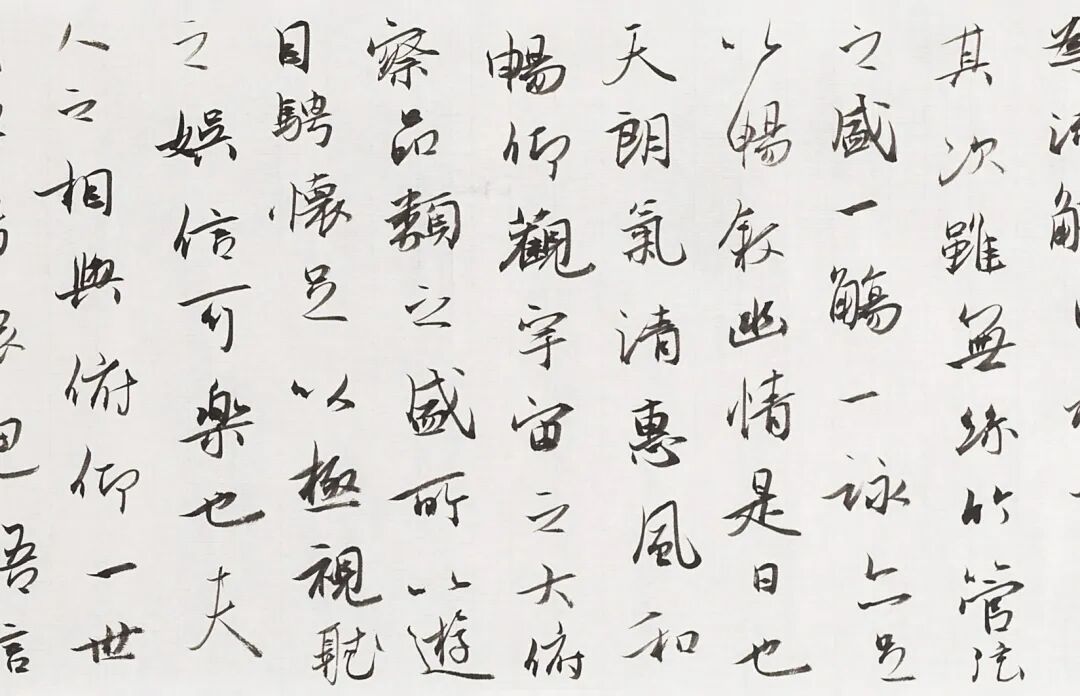 為流觴
其次雖無絲竹管弦
之盛一觴一詠亦足
以暢敘幽情是日也
天朗氣清惠風和
暢仰觀宇宙之大俯
察品類之盛所以遊
目騁懷足以極視聽
之娛信可樂也夫
人之相與俯仰一世
吾言